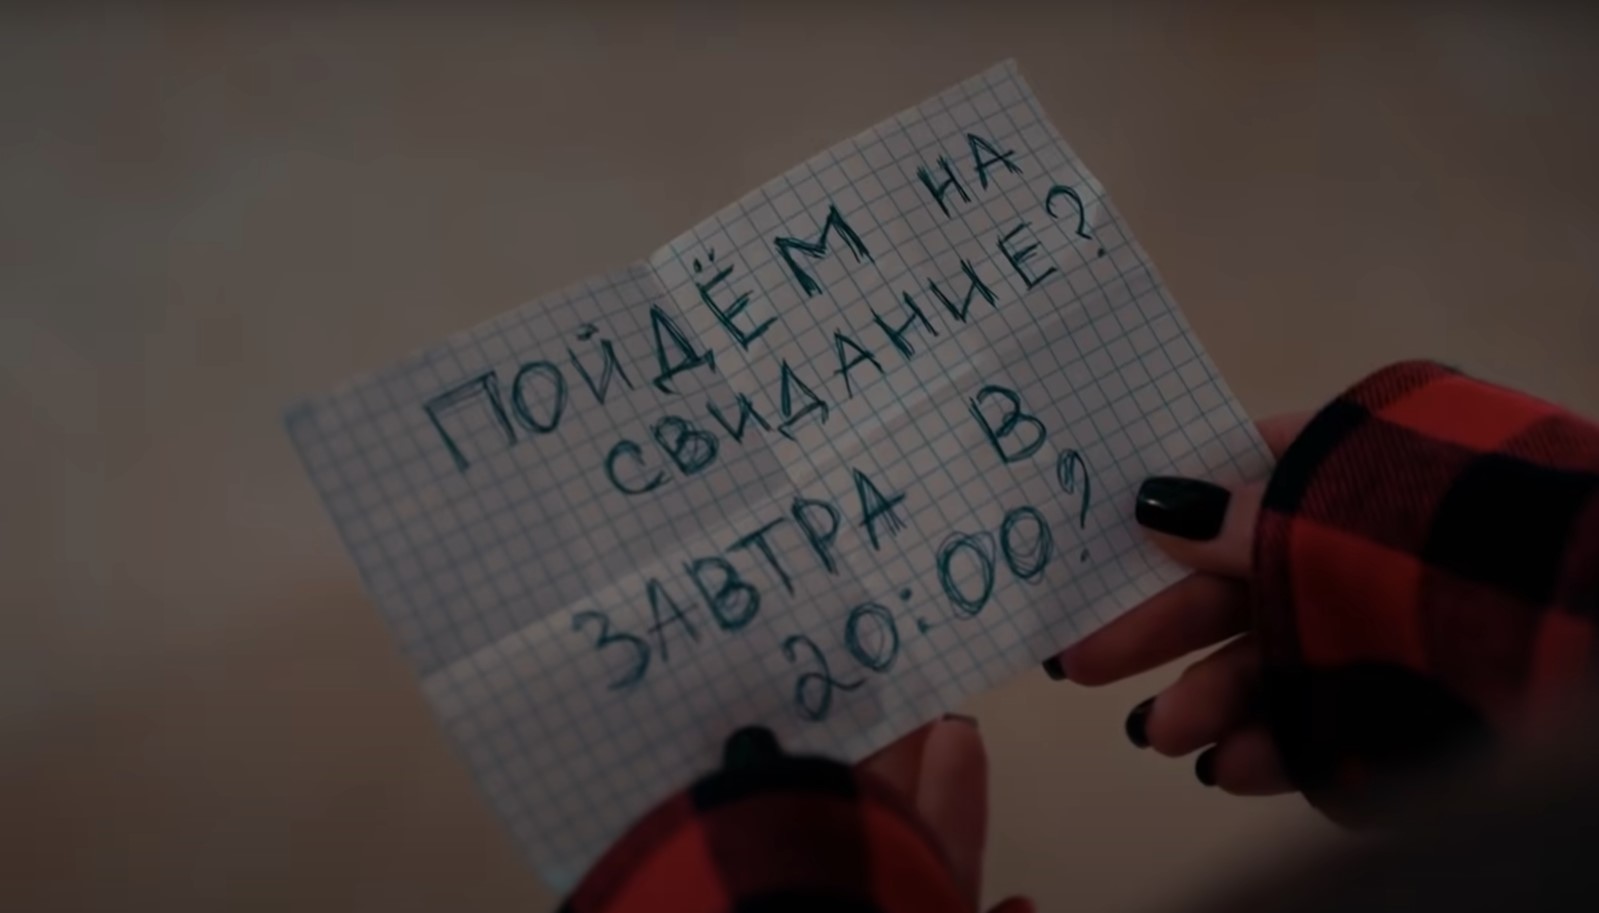 ПОЙДЁМ НА
СВИДАНИЕ?
ЗАВТРА В
20:00?